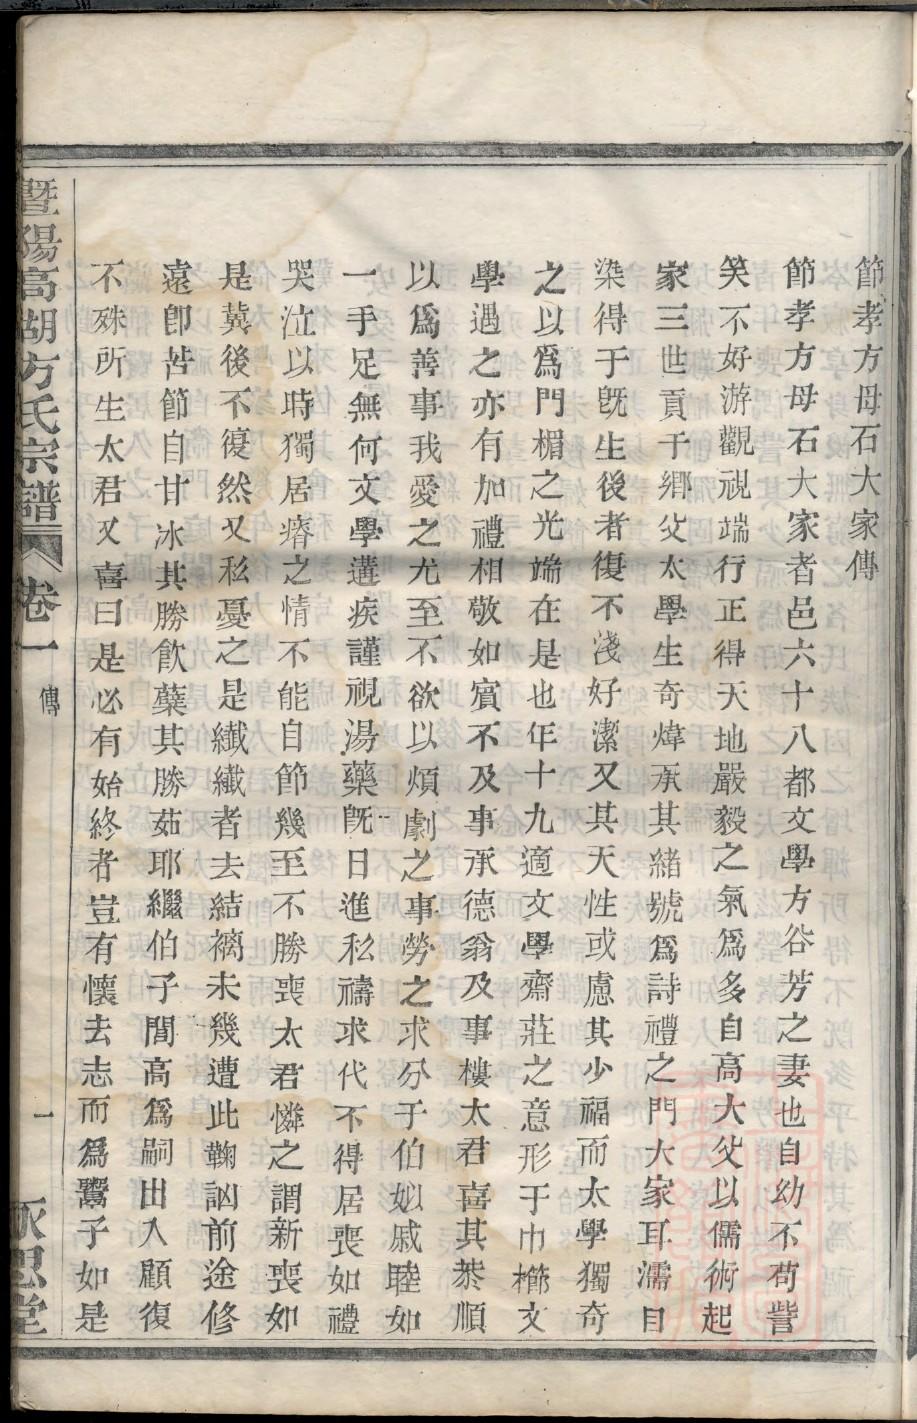 節孝方母石大家傳
節孝方母石大家者邑六十八都文學方谷芳之妻也自幼不苟訾
笑不好游觀視端行正得天地嚴毅之氣爲多自高大父以儒術起
家三世貢于鄉父太學生奇煒承其緒號爲詩禮之門大家耳濡目
染得于旣生後者復不淺好潔又其天性或慮其少福而太學獨奇
之以爲門楣之光端在是也年十九適文學齋莊之意形于巾櫛文
學遇之亦有加禮相敬如賓不及事承德翁及事樓太君喜其恭順
以爲善事我愛之尤至不欲以煩劇之事勞之求分于伯姒戚睦如
一手足無何文學遘疾謹視湯藥旣日進私禱求代不得居喪如禮
哭泣以時獨居瘠之情不能自節幾至不勝喪太君憐之謂新喪如
是冀後不復然又私憂之是纎纎者去結褵未幾遭此鞠訩前途修
遠卽苦節自甘冰其勝飮蘗其勝茹耶繼伯子間高爲嗣出入顧復
不殊所生太君又喜曰是必有始終者豈有懷去志而爲鬻子如是
暨陽高湖方氏宗譜 卷一 傳 一 永思堂